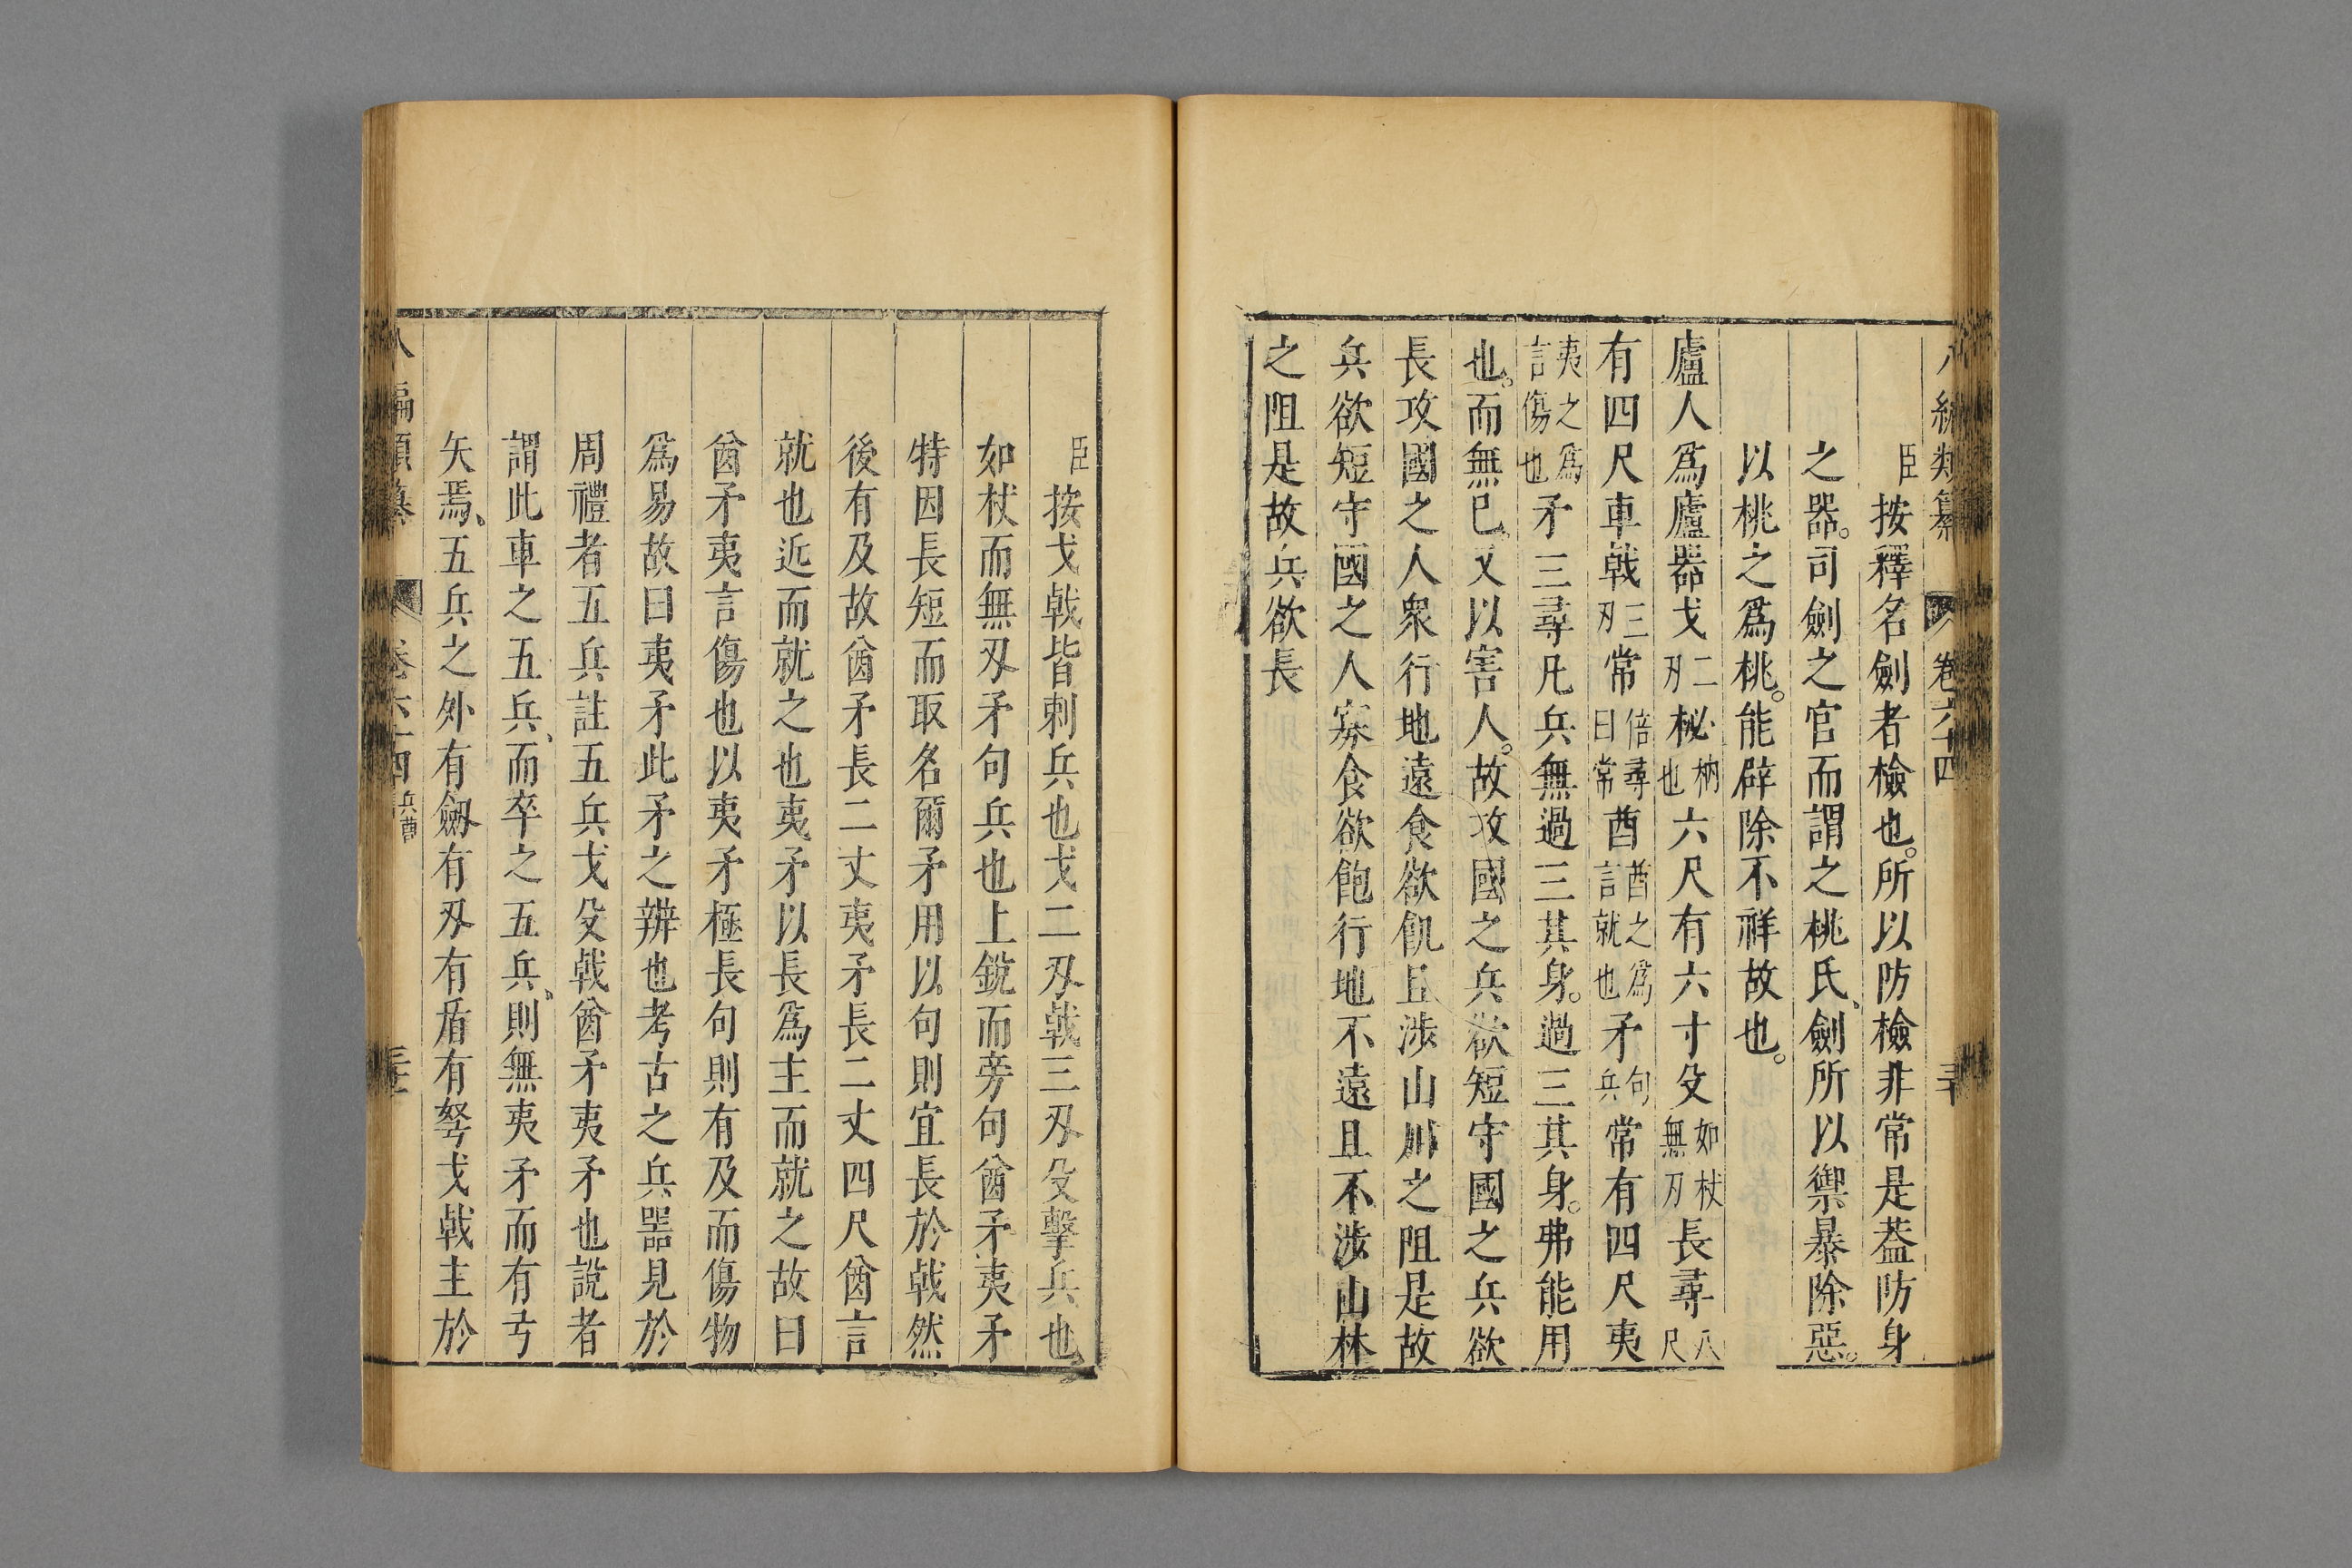 八編類纂 卷六十四 三十
臣按釋名劍者檢也。所以防檢非常是葢防身
之器。司劍之官而謂之桃氏、劍所以禦暴除惡。
以桃之爲桃。能辟除不祥故也。
廬人爲廬器戈二刃柲柲柄也六尺有六寸殳如杖無刃長尋八尺
有四尺車戟三刃常倍尋曰常酋酋之爲言就也矛句兵常有四尺夷
夷之爲言傷也矛三尋凡兵無過三其身。過三其身。弗能用
也。而無已又以害人。故攻國之兵欲短守國之兵欲
長攻國之人衆行地遠食欲飢且涉山川之阻是故
兵欲短守國之人寡食欲飽行地不遠且不涉山林
之阻是故兵欲長
臣按戈戟皆刺兵也戈二刃戟三刃殳擊兵也
如杖而無刃矛句兵也上銳而旁句酋矛夷矛
特因長短而取名爾矛用以句則宜長於戟然
後有及故酋矛長二丈夷矛長二丈四尺酋言
就也近而就之也夷矛以長爲主而就之故曰
酋矛夷言傷也以夷矛極長句則有及而傷物
爲易故曰夷矛此矛之辨也考古之兵噐見於
周禮者五兵註五兵戈殳戟酋矛夷矛也說者
謂此車之五兵、而卒之五兵、則無夷矛而有弓
矢焉、五兵之外有劔有刃有盾有弩戈戟主於
八編類纂 卷六十四 兵曹